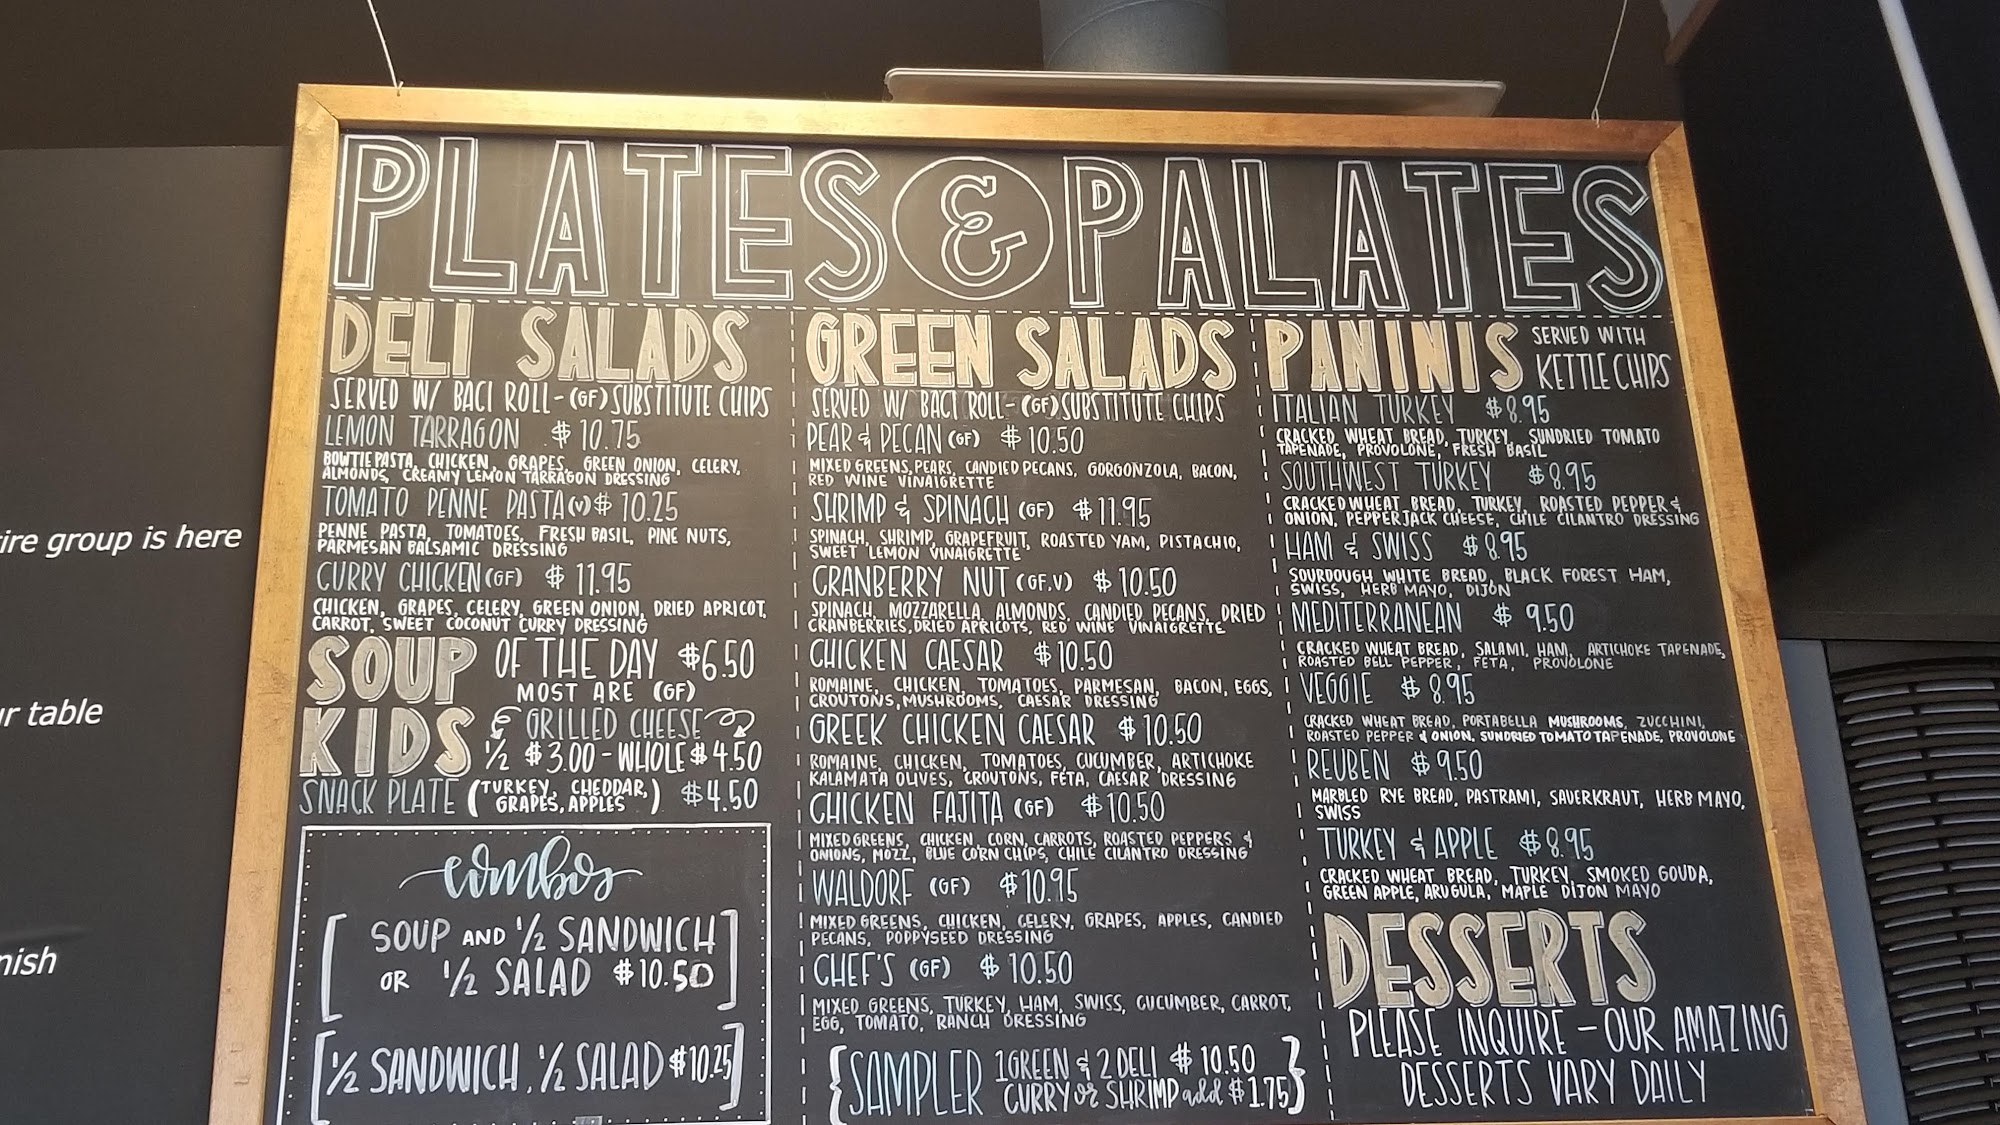 PLATES & PALATES
DELI SALADS
SERVED W/ BACI ROLL-(GF) SUBSTITUTE CHIPS
LEMON TARRAGON $10.75
BOWTIE PASTA, CHICKEN, GRAPES, GREEN ONION, CELERY,
ALMONDS, CREAMY LEMON TARRAGON DRESSING
TOMATO PENNE PASTA (V) $10.25
PENNE PASTA, TOMATOES, FRESH BASIL, PINE NUTS,
PARMESAN BALSAMIC DRESSING
CURRY CHICKEN (GF) $11.95
CHICKEN, GRAPES, CELERY, GREEN ONION, DRIED APRICOT,
CARROT, SWEET COCONUT CURRY DRESSING
SOUP OF THE DAY $6.50
MOST ARE (GF)
KIDS GRILLED CHEESE
1/2 $3.00 - WHOLE $4.50
SNACK PLATE (TURKEY, CHEDDAR,
GRAPES, APPLES) $4.50
combos
[SOUP AND 1/2 SANDWICH
OR 1/2 SALAD $10.50]
[1/2 SANDWICH, 1/2 SALAD $10.25]
GREEN SALADS
SERVED W/ BACI ROLL-(GF) SUBSTITUTE CHIPS
PEAR & PECAN (GF) $10.50
MIXED GREENS, PEARS, CANDIED PECANS, GORGONZOLA, BACON,
RED WINE VINAIGRETTE
SHRIMP & SPINACH (GF) $11.95
SPINACH, SHRIMP, GRAPEFRUIT, ROASTED YAM, PISTACHIO,
SWEET LEMON VINAIGRETTE
CRANBERRY NUT (GF,V) $10.50
SPINACH, MOZZARELLA, ALMONDS, CANDIED PECANS, DRIED
CRANBERRIES, DRIED APRICOTS, RED WINE VINAIGRETTE
CHICKEN CAESAR $10.50
ROMAINE, CHICKEN, TOMATOES, PARMESAN, BACON, EGGS,
CROUTONS, MUSHROOMS, CAESAR DRESSING
GREEK CHICKEN CAESAR $10.50
ROMAINE, CHICKEN, TOMATOES, CUCUMBER, ARTICHOKE
KALAMATA OLIVES, CROUTONS, FETA, CAESAR DRESSING
CHICKEN FAJITA (GF) $10.50
MIXED GREENS, CHICKEN, CORN, CARROTS, ROASTED PEPPERS &
ONIONS, MOZZ, BLUE CORN CHIPS, CHILE CILANTRO DRESSING
WALDORF (GF) $10.95
MIXED GREENS, CHICKEN, CELERY, GRAPES, APPLES, CANDIED
PECANS, POPPYSEED DRESSING
CHEF'S (GF) $10.50
MIXED GREENS, TURKEY, HAM, SWISS, CUCUMBER, CARROT,
EGG, TOMATO, RANCH DRESSING
{SAMPLER 1 GREEN & 2 DELI $10.50
CURRY or SHRIMP add $1.75}
PANINIS SERVED WITH
KETTLE CHIPS
ITALIAN TURKEY $8.95
CRACKED WHEAT BREAD, TURKEY, SUNDRIED TOMATO
TAPENADE, PROVOLONE, FRESH BASIL
SOUTHWEST TURKEY $8.95
CRACKED WHEAT BREAD, TURKEY, ROASTED PEPPER &
ONION, PEPPERJACK CHEESE, CHILE CILANTRO DRESSING
HAM & SWISS $8.95
SOURDOUGH WHITE BREAD, BLACK FOREST HAM,
SWISS, HERB MAYO, DIJON
MEDITERRANEAN $9.50
CRACKED WHEAT BREAD, SALAMI, HAM, ARTICHOKE TAPENADE,
ROASTED BELL PEPPER, FETA, PROVOLONE
VEGGIE $8.95
CRACKED WHEAT BREAD, PORTABELLA MUSHROOMS, ZUCCHINI,
ROASTED PEPPER & ONION, SUNDRIED TOMATO TAPENADE, PROVOLONE
REUBEN $9.50
MARBLED RYE BREAD, PASTRAMI, SAUERKRAUT, HERB MAYO,
SWISS
TURKEY & APPLE $8.95
CRACKED WHEAT BREAD, TURKEY, SMOKED GOUDA,
GREEN APPLE, ARUGULA, MAPLE DIJON MAYO
DESSERTS
PLEASE INQUIRE - OUR AMAZING
DESSERTS VARY DAILY
ire group is here
r table
nish